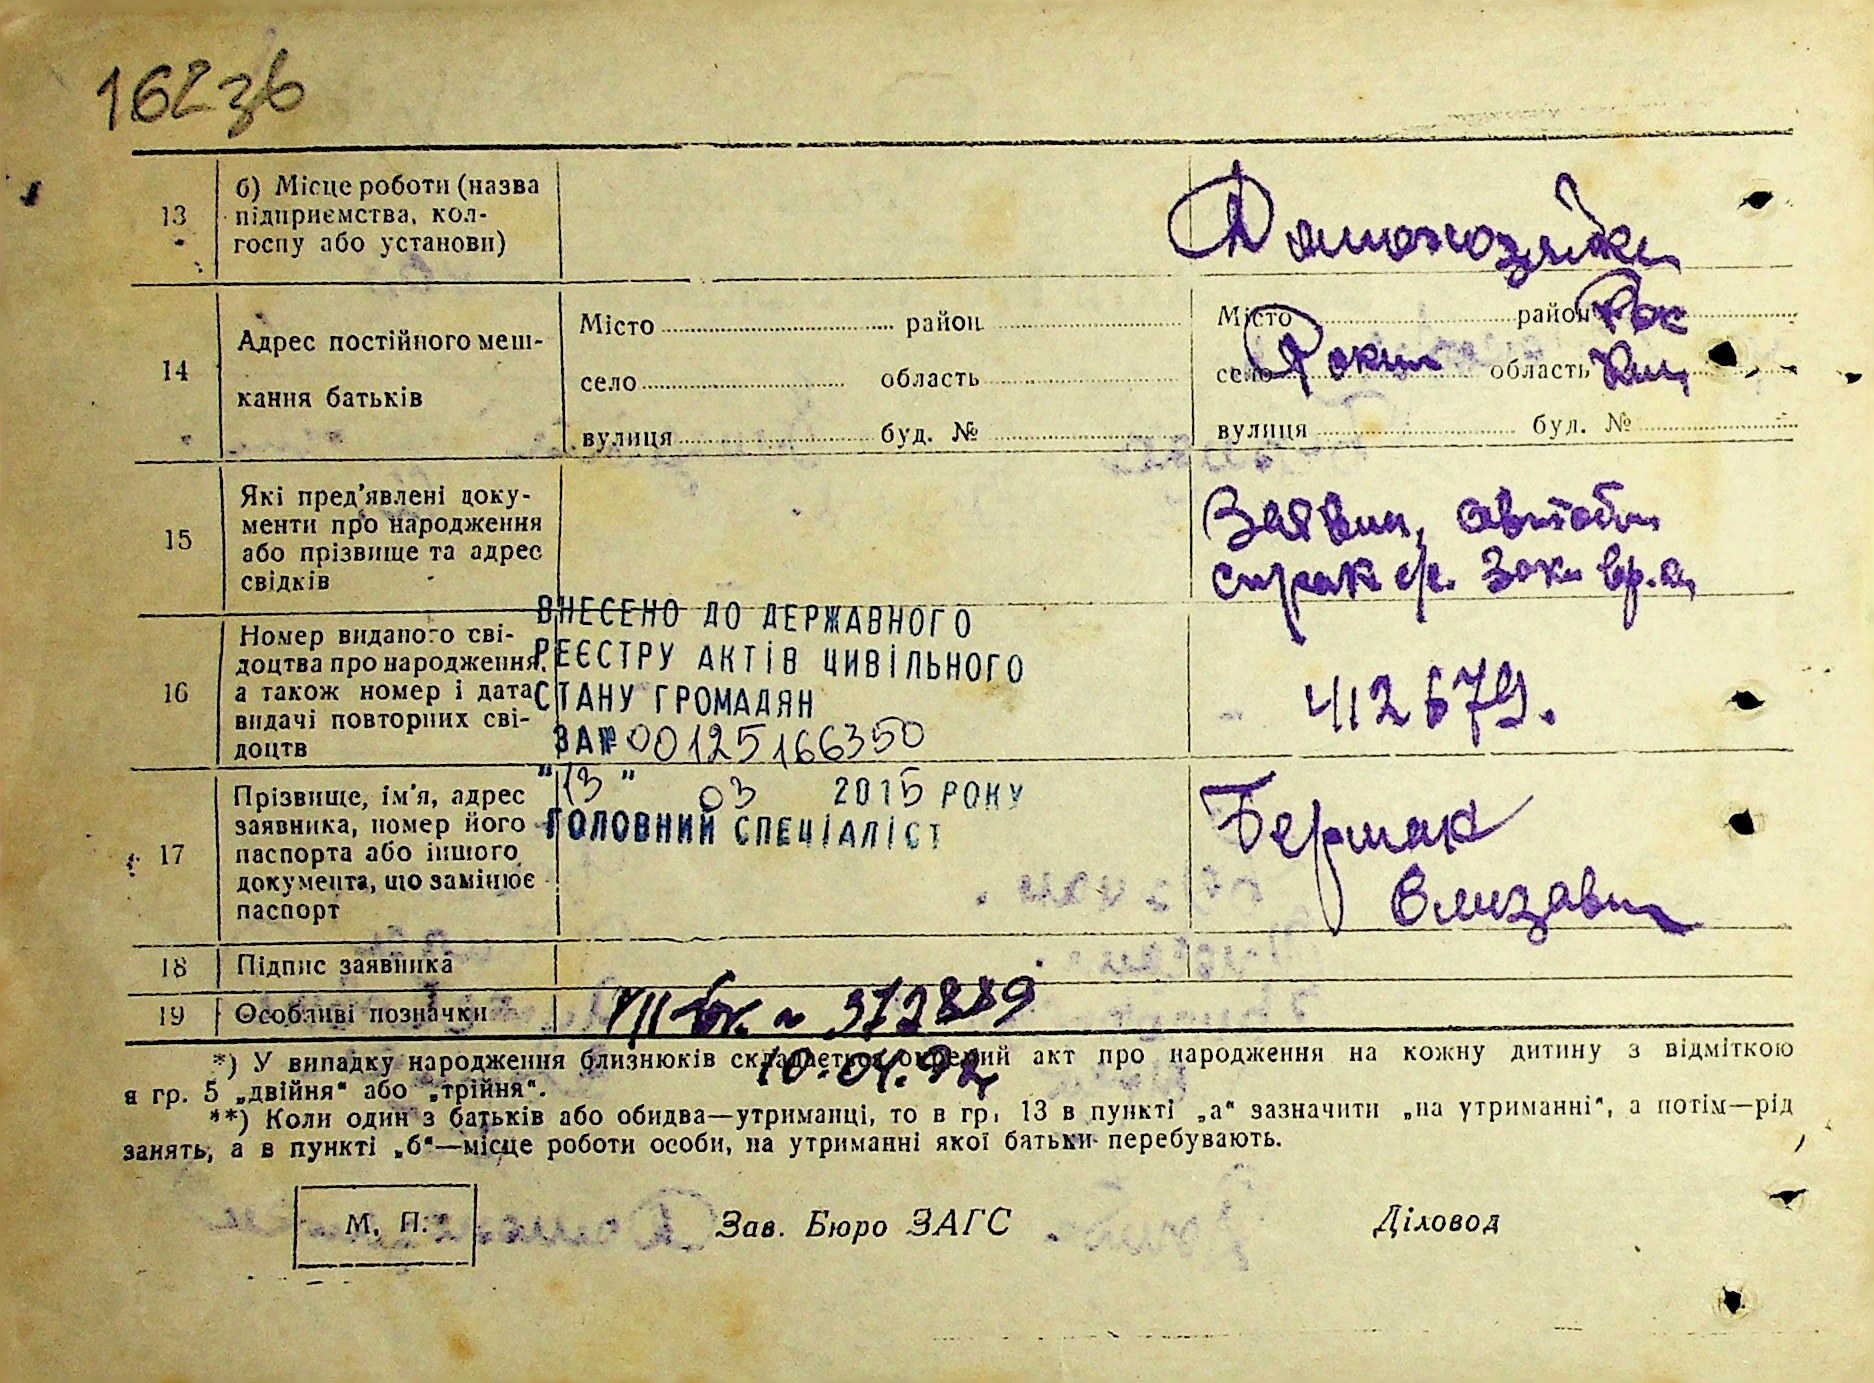 162зв
13
б) Місце роботи (назва
підприємства, кол-
госпу або установи)
Домохозяйка
14
Адрес постійного меш-
кання батьків
Місто район
село область
вулиця буд. №
Місто район
село область
вулиця буд. №
15
Які пред’явлені доку-
менти про народження
або прізвище та адрес
свідків
Заявка,
16
Номер виданого сві-
доцтва про народження,
а також номер і дата
видачі повторних сві-
доцтв
ВНЕСЕНО ДО ДЕРЖАВНОГО
РЕЄСТРУ АКТІВ ЦИВІЛЬНОГО
СТАНУ ГРОМАДЯН
ЗА № 00125166350
"13" 03 2015 РОКУ
ГОЛОВНИЙ СПЕЦІАЛІСТ
412679.
17
Прізвище, ім’я, адрес
заявника, номер його
паспорта або іншого
документа, що замінює
паспорт
Бермак
18
Підпис заявника
19
Особливі позначки
10.04.92
*) У випадку народження близнюків складається окремий акт про народження на кожну дитину з відміткою
в гр. 5 „двійня“ або „трійня“.
**) Коли один з батьків або обидва—утриманці, то в гр. 13 в пункті „а“ зазначити „на утриманні“, а потім—рід
занять, а в пункті „б“—місце роботи особи, на утриманні якої батьки перебувають.
М. П.
Зав. Бюро ЗАГС
Діловод